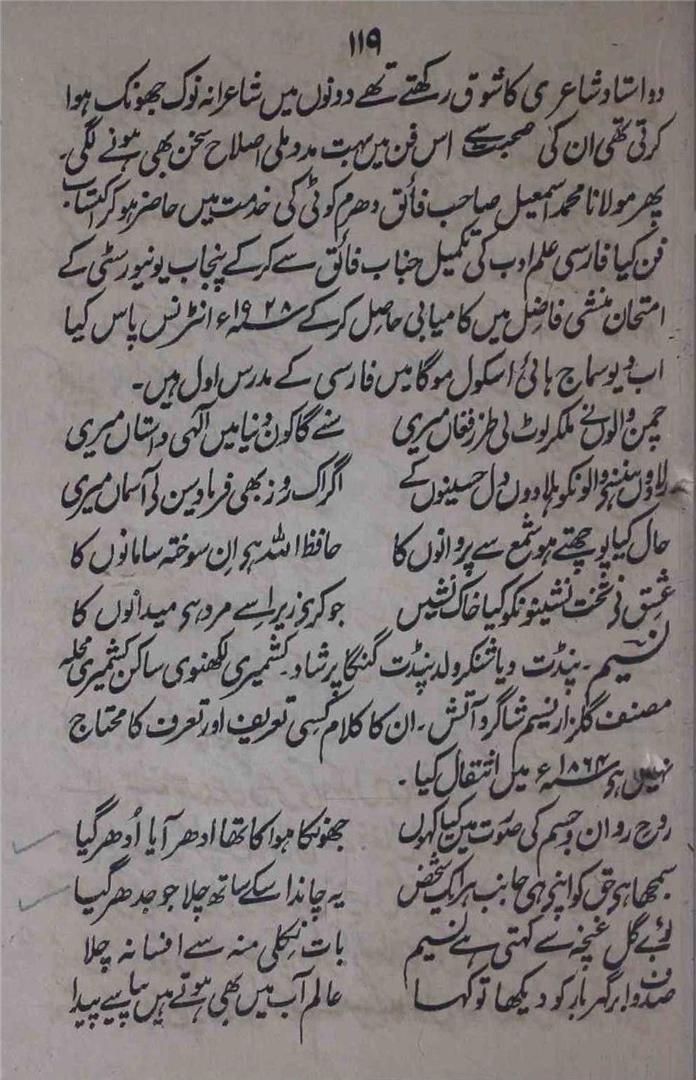 ۱۱۹
دو استاد شاعری کا شوق رکھتے تھے دونوں میں شاعرانہ نوک جھونک ہوا
کرتی تھی ان کی صحبت سے اس فن میں بہت مدد ملی اصلاح سخن بھی ہونے لگی۔
پھر مولانا محمد اسمعیل صاحب فائق دھرم کوٹی کی خدمت میں حاضر ہو کر اکتساب
فن کیا فارسی علم ادب کی تکمیل جناب فائق سے کر کے پنجاب یونیورسٹی کے
امتحان منشی فاضل میں کامیابی حاصل کر کے ۱۹۲۸ء انٹرنس پاس کیا
اب دیو سماج ہائی اسکول موگا میں فارسی کے مدرس اول ہیں۔
چمن والوں نے ملکر لوٹ لی طرز فغاں میری سنے گا کون دنیا میں الٰہی داستاں میری
رلا دوں ہنسنے والونکو ہلا دوں دل حسینوں کے اگر اک روز بھی فریاد سن لی آسماں میری
حال کیا پوچھتے ہو شمع سے پروانوں کا حافظ اللہ ہی ان سوختہ سامانوں کا
عشق نے تخت نشینونکو کیا خاک نشیں جو کرے زیر اسے مرد ہی میدانوں کا
نسیم۔ پنڈت دیا شنکر ولد پنڈت گنگا پرشاد۔ کشمیری لکھنوی ساکن کشمیری محلہ
مصنف گلزار نسیم شاگرد آتش۔ ان کا کلام کسی تعریف اور تعرف کا محتاج
نہیں ہی ۱۸۶۴ء میں انتقال کیا۔
روح روان و جسم کی صورت میں کیا کہوں جھونکا ہوا کا تھا ادھر آیا اُدھر گیا
سمجھا ہی حق کو اپنی ہی جانب ہر ایک شخص یہ چاند اسکے ساتھ چلا جو جدھر گیا
بوئے گل غنچہ سے کہتی ہے نسیم بات نکلی منہ سے افسانہ چلا
صدف و ابر گہر بار کو دیکھا تو کہا عالم آب میں بھی ہوتے ہیں پیدا